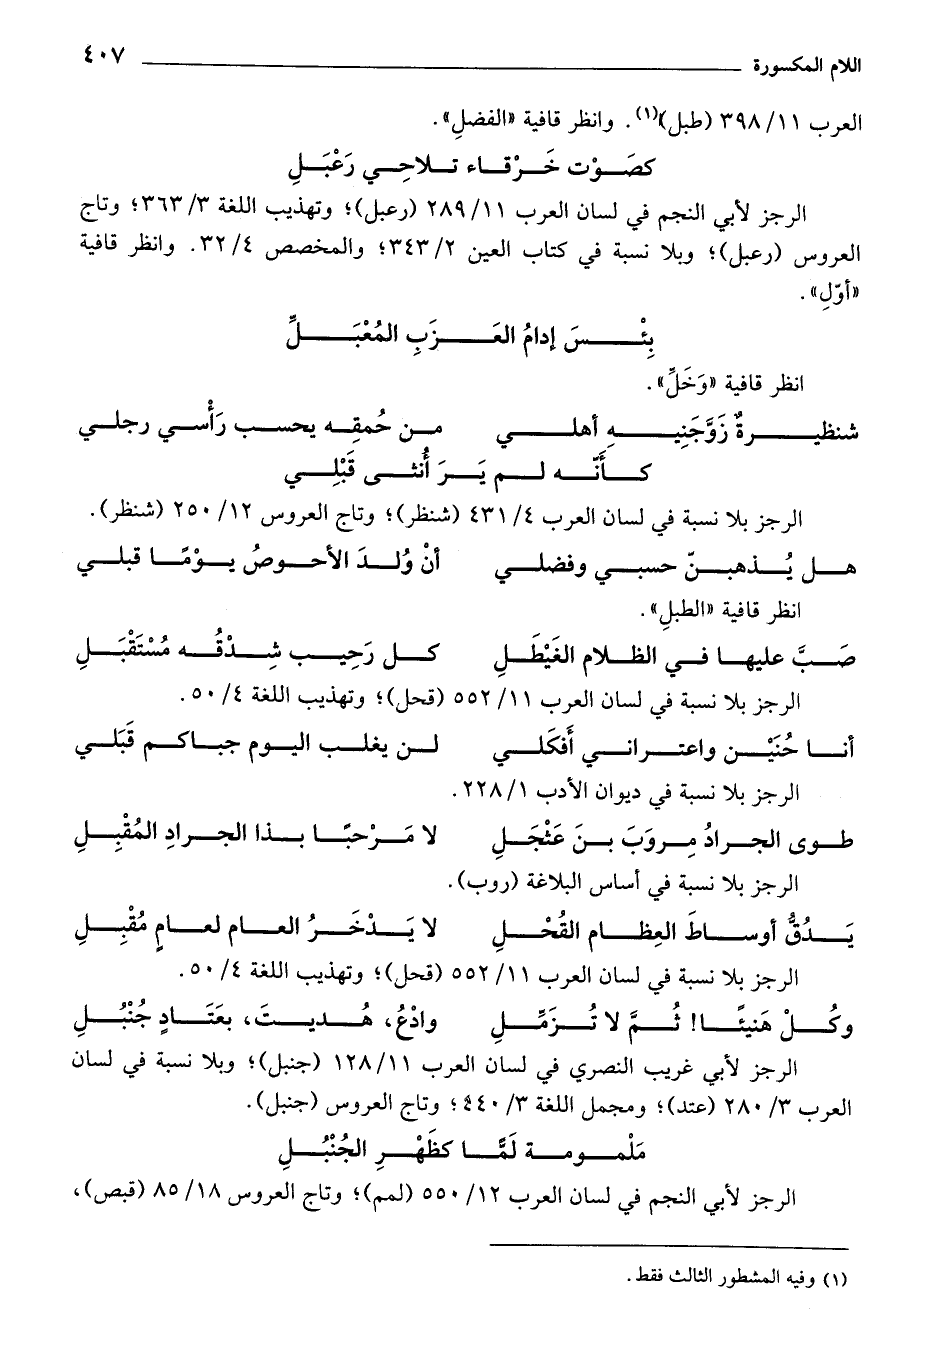 اللام المكسورة ٤٠٧
العرب ٣٩٨/١١ (طبل)(١). وانظر قافية «الفضلِ».
كصَوْت خَرْقاء تلاحِي رَعْبَلِ
الرجز لأبي النجم في لسان العرب ٢٨٩/١١ (رعبل)؛ وتهذيب اللغة ٣٦٣/٣؛ وتاج
العروس (رعبل)؛ وبلا نسبة في كتاب العين ٣٤٣/٢؛ والمخصص ٣٢/٤. وانظر قافية
«أوّلِ».
بِئْسَ إدامُ العَزَبِ المُعْبَلِّ
انظر قافية «وَخَلِّ».
شنظيرةٌ زَوَّجَنِيهِ أهلي من حُمقِه يحسب رَأْسي رجلي
كأنّه لم يَرَ أُنثى قَبْلِي
الرجز بلا نسبة في لسان العرب ٤٣١/٤ (شنظر)؛ وتاج العروس ٢٥٠/١٢ (شنظر).
هل يُذهبنّ حسبي وفضلي أنْ وُلدَ الأحوصُ يوْمًا قبلي
انظر قافية «الطبلِ».
صَبَّ عليها في الظلام الغَيْطَلِ كل رَحِيب شِدْقُه مُسْتَقْبَلِ
الرجز بلا نسبة في لسان العرب ٥٥٢/١١ (قحل)؛ وتهذيب اللغة ٥٠/٤.
أنا حُنَيْن واعتراني أَفكَلي لن يغلب اليوم جباكم قَبَلي
الرجز بلا نسبة في ديوان الأدب ٢٢٨/١.
طوى الجرادُ مِروَبَ بنَ عَثْجَلِ لا مَرْحبًا بذا الجرادِ المُقْبِلِ
الرجز بلا نسبة في أساس البلاغة (روب).
يَدُقُّ أوساطَ العِظام القُحْلِ لا يَدْخَرُ العام لعامٍ مُقْبِلِ
الرجز بلا نسبة في لسان العرب ٥٥٢/١١ (قحل)؛ وتهذيب اللغة ٥٠/٤.
وكُلْ هَنيئًا! ثُمَّ لا تُزَمِّلِ وادْعُ، هُديتَ، بعَتَادٍ جُنْبُلِ
الرجز لأبي غريب النصري في لسان العرب ١٢٨/١١ (جنبل)؛ وبلا نسبة في لسان
العرب ٢٨٠/٣ (عتد)؛ ومجمل اللغة ٤٤٠/٣؛ وتاج العروس (جنبل).
مَلْمومة لَمًّا كظَهْرِ الجُنْبُلِ
الرجز لأبي النجم في لسان العرب ٥٥٠/١٢ (لمم)؛ وتاج العروس ٨٥/١٨ (قبص)،
(١) وفيه المشطور الثالث فقط.